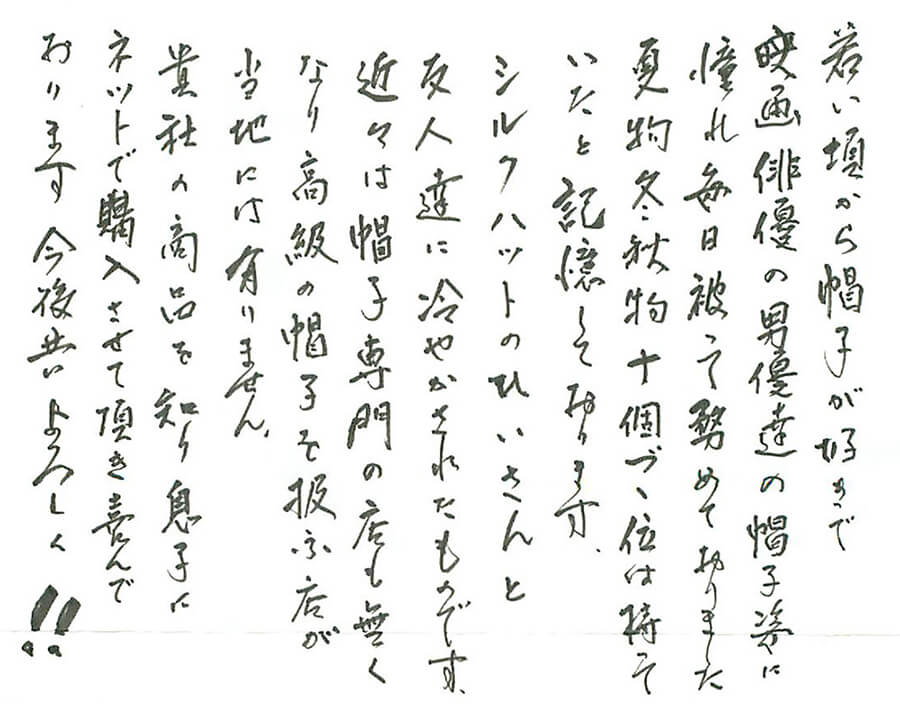 若い頃から帽子が好きで
映画俳優の男優達の帽子姿に
憧れ毎日被って努めておりました
夏物冬秋物十個づゝ位は持って
いたと記憶しております、
シルクハットのれいさんと
友人達に冷やかされたものです、
近々は帽子専門の店も無く
なり高級の帽子を扱ふ店が
当地には有りません、
貴社の商品を知り息子に
ネットで購入させて頂き喜んで
おります今後共よろしく!!